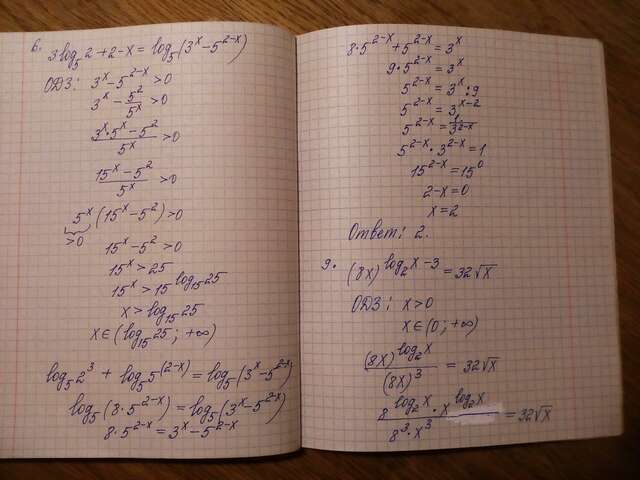 6. 3log₅2+2-x = log₅(3ˣ-5²⁻ˣ)
ОДЗ: 3ˣ-5²⁻ˣ>0
3ˣ - 5²/5ˣ >0
(3ˣ·5ˣ-5²)/5ˣ >0
(15ˣ-5²)/5ˣ >0
5ˣ(15ˣ-5²)>0
>0
15ˣ-5²>0
15ˣ>25
15ˣ>15^(log₁₅25)
x>log₁₅25
x∈(log₁₅25; +∞)
log₅2³ + log₅5^(2-x) = log₅(3ˣ-5²⁻ˣ)
log₅(8·5²⁻ˣ) = log₅(3ˣ-5²⁻ˣ)
8·5²⁻ˣ = 3ˣ-5²⁻ˣ
8·5²⁻ˣ+5²⁻ˣ=3ˣ
9·5²⁻ˣ=3ˣ
5²⁻ˣ=3ˣ:9
5²⁻ˣ=3ˣ⁻²
5²⁻ˣ=1/3²⁻ˣ
5²⁻ˣ·3²⁻ˣ=1
15²⁻ˣ=15⁰
2-x=0
x=2
Ответ: 2.
9. (8x)^(log₂x-3) = 32√x
ОДЗ: x>0
x∈(0; +∞)
(8x)^(log₂x)/(8x)³ = 32√x
8^(log₂x)·x^(log₂x)/(8³·x³) = 32√x